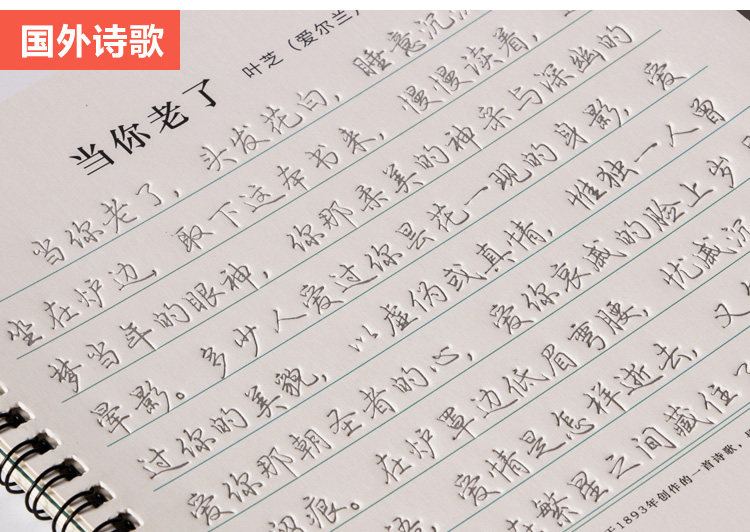 国外诗歌
当你老了 叶芝（爱尔兰）
当你老了，头发花白，睡意沉沉
坐在炉边，取下这本书来，慢慢读着，
梦当年的眼神，你那柔美的神采与深幽的
晕影。多少人爱过你昙花一现的身影，爱
过你的美貌，以虚伪或真情，惟独一人曾
爱你那朝圣者的心，爱你哀戚的脸上岁
留痕。在炉罩边低眉弯腰，忧戚沉
语，爱情是怎样逝去，又
繁星之间藏住了
于1893年创作的一首诗歌，